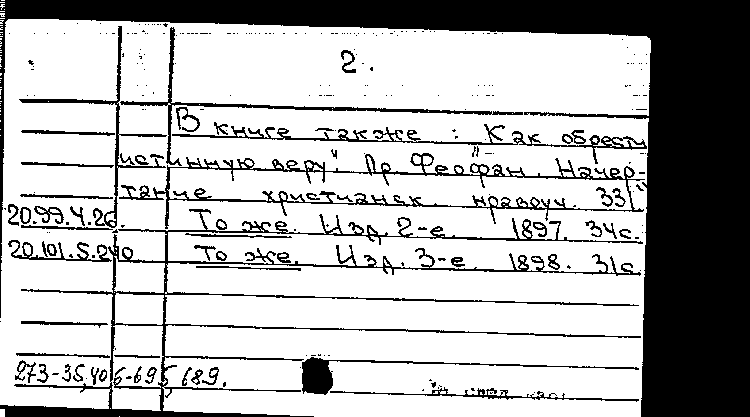 2.
В книге также: Как обрести
истинную веру". Пр. Феофан. "Начер-
тание христианск. нравоуч. 331"
20.99.4.26. То же. Изд. 2-е. 1897. 34с.
20.101.5.240 То же. Изд. 3-е. 1898. 31с
273-35,406-695,689.